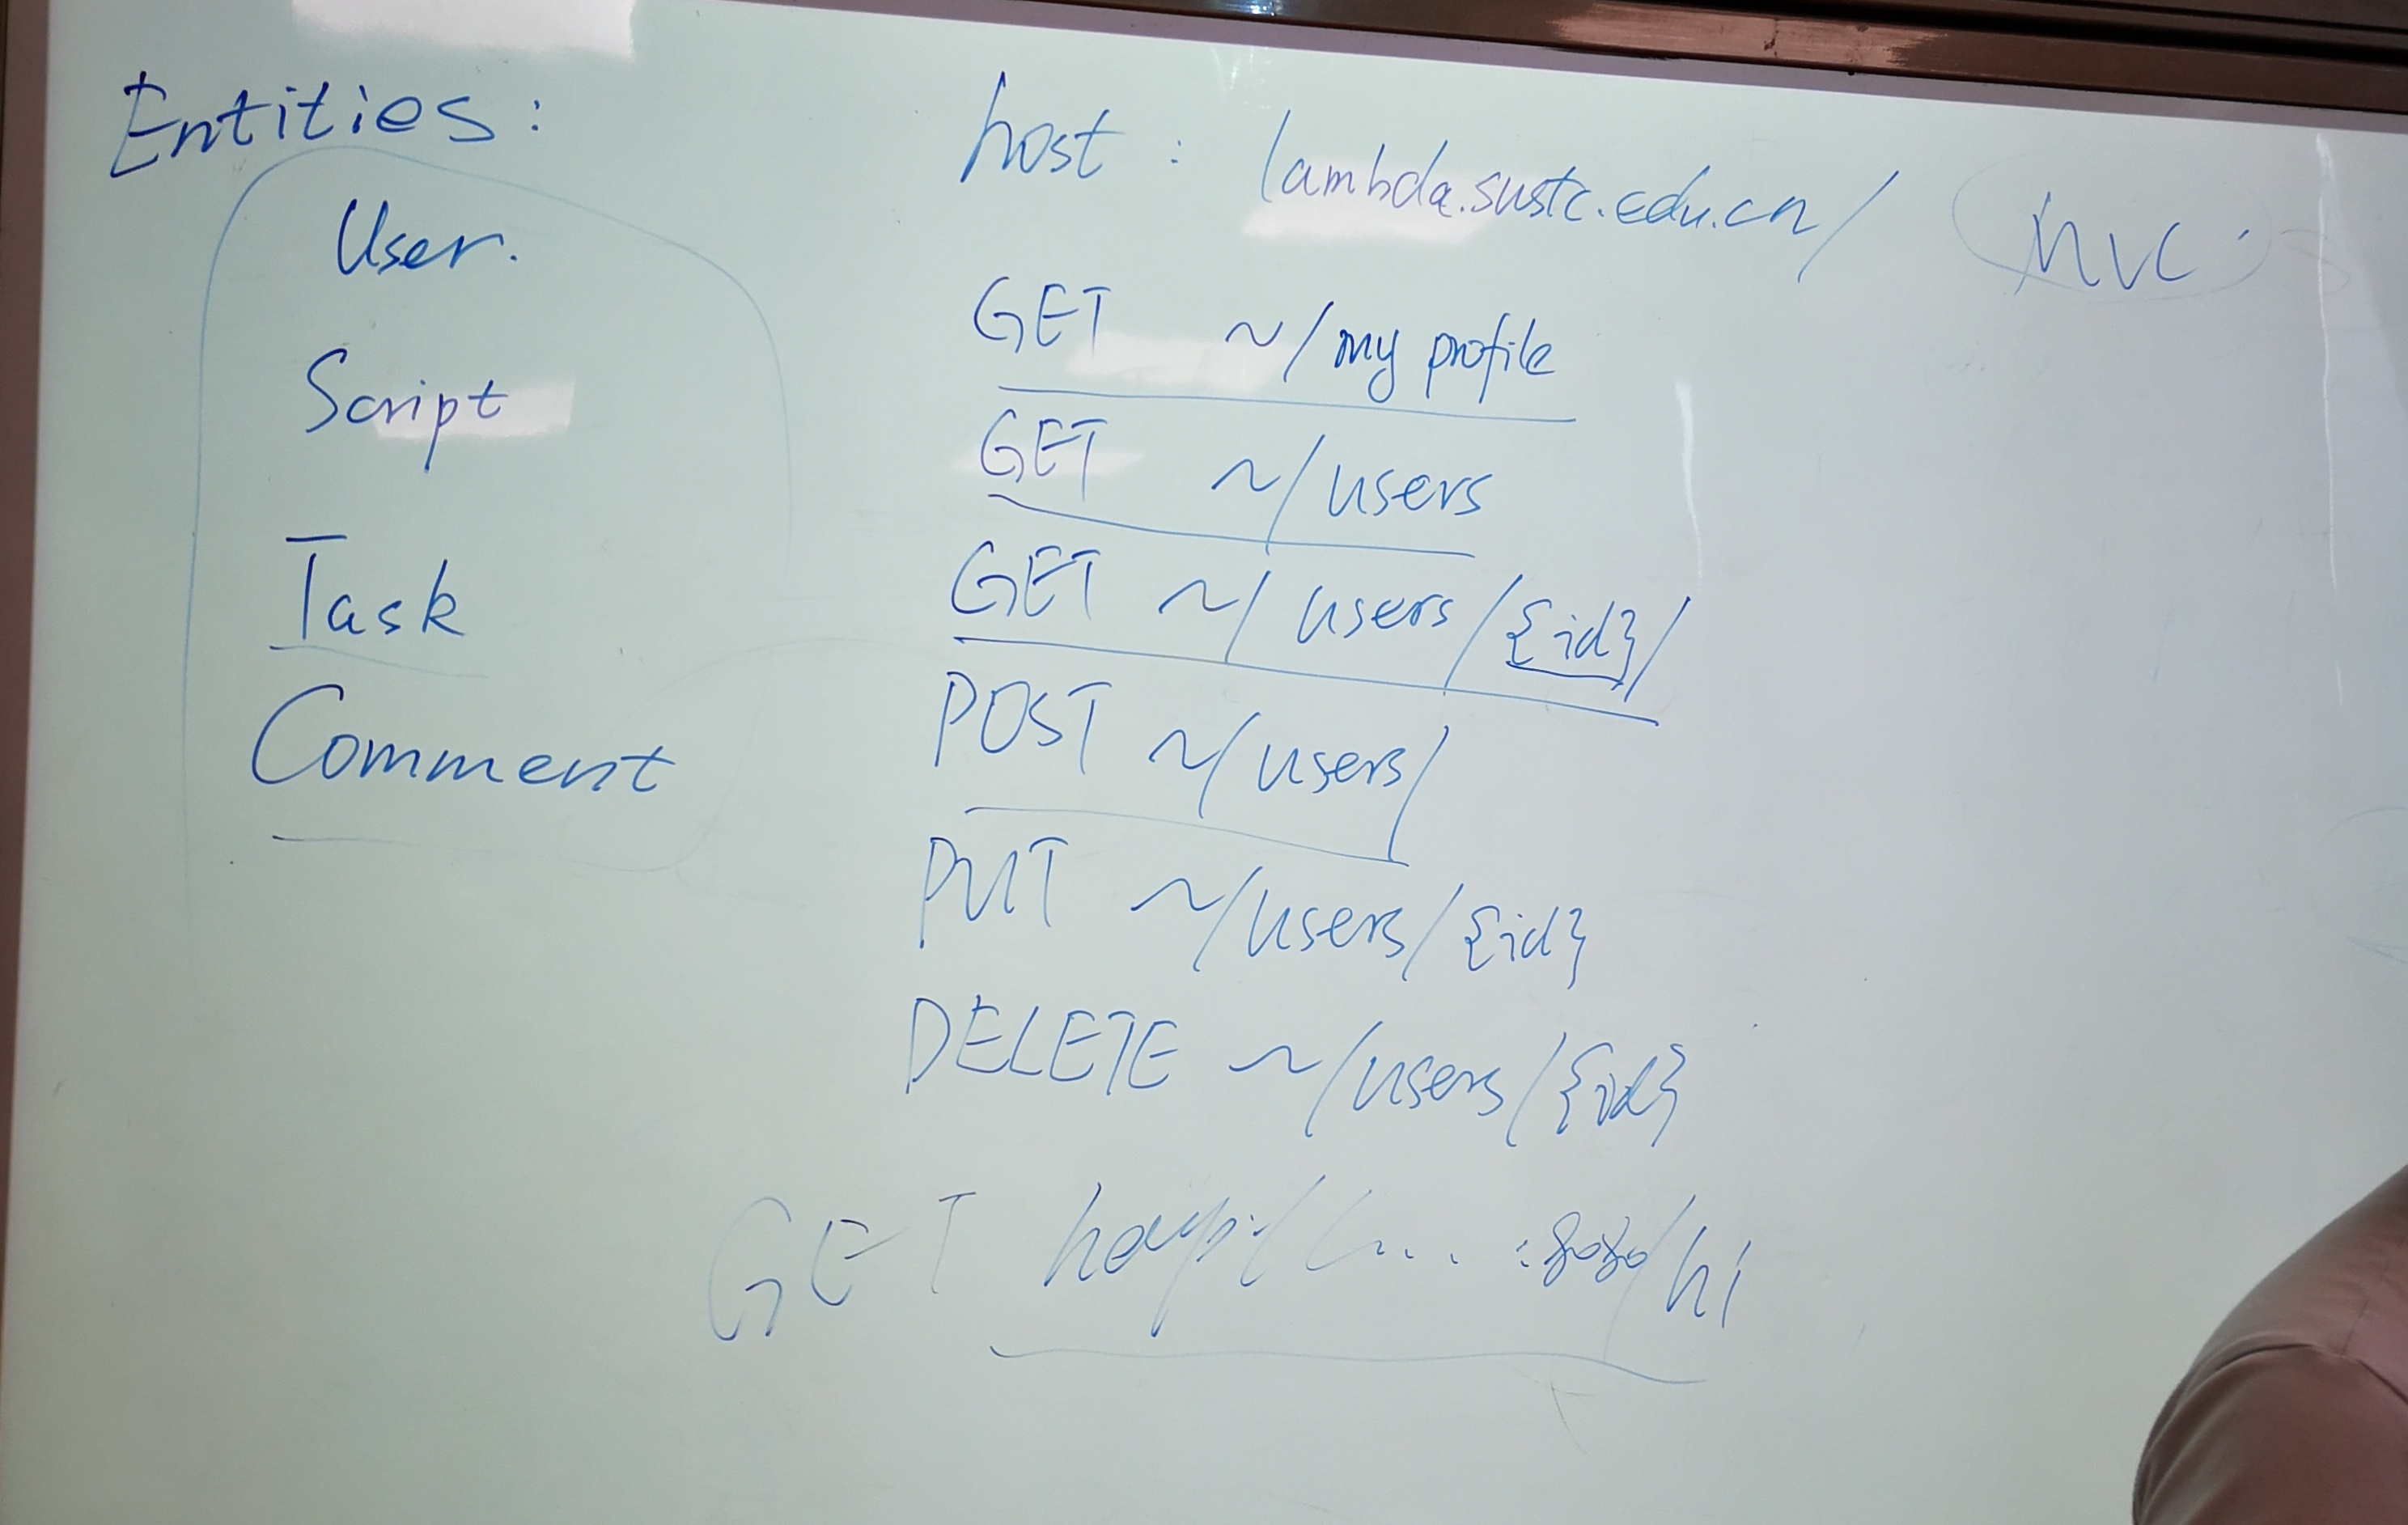 Entities:
User.
Script
Task
Comment
host : lambda.sustc.edu.cn/
MVC
GET ~/my profile
GET ~/users
GET ~/users/{id}/
POST ~/users/
PUT ~/users/{id}
DELETE ~/users/{id}
GET :8080/hi